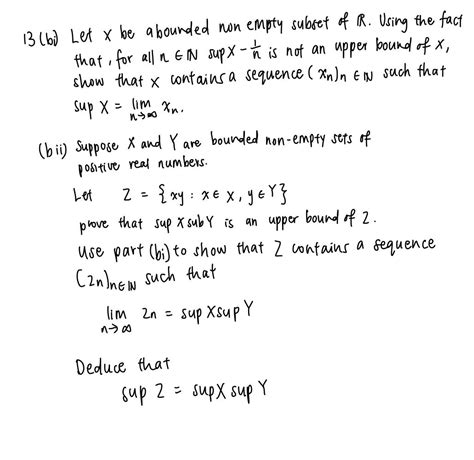 13 (bi) Let X be a bounded non empty subset of ℝ. Using the fact
that, for all n ∈ ℕ sup X - 1/n is not an upper bound of X,
show that X contains a sequence (xn)n ∈ ℕ such that
sup X = lim n→∞ xn.
(bii) Suppose X and Y are bounded non-empty sets of
positive real numbers.
Let Z = {xy : x ∈ X, y ∈ Y}
prove that sup X sub Y is an upper bound of Z.
use part (bi) to show that Z contains a sequence
(Zn)n∈ℕ such that
lim n→∞ Zn = sup X sup Y
Deduce that
sup Z = sup X sup Y